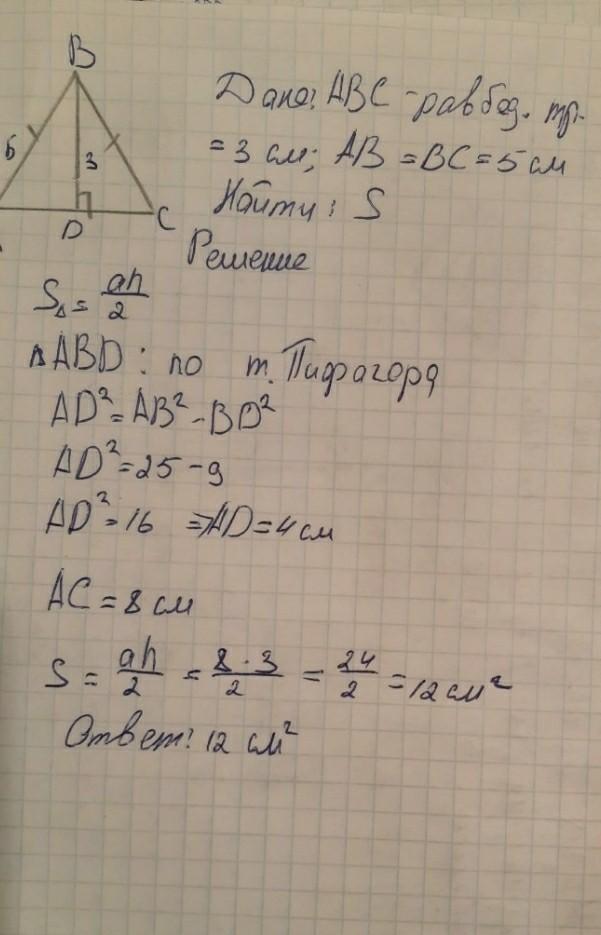 B
5
3
D
C
Дано: ABC - равбед. тр.
= 3 см; AB = BC = 5 см
Найти: S
Решение
S△ = ah/2
△ABD: по т. Пифагора
AD² = AB² - BD²
AD² = 25 - 9
AD² = 16 ⇒ AD = 4 см
AC = 8 см
S = ah/2 = 8 · 3/2 = 24/2 = 12 см²
Ответ: 12 см²